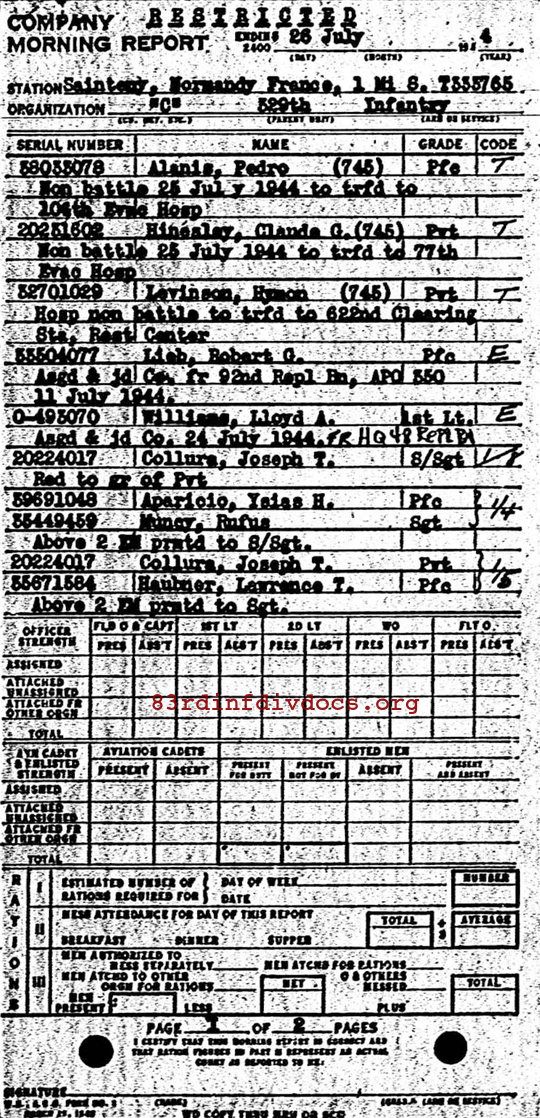 RESTRICTED
COMPANY
MORNING REPORT ENDING 2400 26 July 194 4
(DAY) (MONTH) (YEAR)
STATION Sainteny, Normandy France, 1 Mi S. T335765
ORGANIZATION "C" 329th Infantry
(CO. DET. ETC.) (PARENT UNIT) (ARM OR SERVICE)
SERIAL NUMBER NAME GRADE CODE
38035078 Alanis, Pedro (745) Pfc T
Non battle 25 July 1944 to trfd to
104th Evac Hosp
20251602 Hinesley, Claude G. (745) Pvt T
Non battle 25 July 1944 to trfd to 77th
Evac Hosp
32701029 Levinson, Hymon (745) Pvt T
Hosp non battle to trfd to 622nd Clearing
Sta, Rest Center
33504077 Lieb, Robert G. Pfc E
Asgd & jd Co. fr 92nd Repl Bn, APO 350
11 July 1944.
O-493070 Williams, Lloyd A. 1st Lt. E
Asgd & jd Co. 24 July 1944. FR HQ 48 REPL BN
20224017 Collura, Joseph T. S/Sgt
Red to gr of Pvt
39691048 Aparicio, Ysias H. Pfc } 1/4
35449459 Muncy, Rufus Sgt
Above 2 EM prmtd to S/Sgt.
20224017 Collura, Joseph T. Pvt } 1/5
35671584 Haubner, Lawrence T. Pfc
Above 2 EM prmtd to Sgt.
OFFICER STRENGTH FLD O & CAPT 1ST LT 2D LT WO FLT O
PRES ABS'T PRES ABS'T PRES ABS'T PRES ABS'T PRES ABS'T
ASSIGNED
ATTACHED UNASSIGNED
ATTACHED FR OTHER ORGN
TOTAL
83rdinfdivdocs.org
AVN CADET & ENLISTED STRENGTH AVIATION CADETS ENLISTED MEN
PRESENT ABSENT PRESENT FOR DUTY PRESENT NOT FOR DY ABSENT PRESENT AND ABSENT
ASSIGNED
ATTACHED UNASSIGNED
ATTACHED FR OTHER ORGN
TOTAL
RATIONS
I ESTIMATED NUMBER OF RATIONS REQUIRED FOR { DAY OF WEEK DATE NUMBER
II MESS ATTENDANCE FOR DAY OF THIS REPORT TOTAL ÷ 3 AVERAGE
BREAKFAST DINNER SUPPER
III MEN AUTHORIZED TO MESS SEPARATELY MEN ATCHD FOR RATIONS
MEN ATCHD TO OTHER ORGN FOR RATIONS NET O & OTHERS MESSED TOTAL
MEN PRESENT LESS PLUS
PAGE 1 OF 2 PAGES
I CERTIFY THAT THIS MORNING REPORT IS CORRECT AND
THAT RATION FIGURES IN PART III REPRESENT AN ACTUAL
COUNT AS REPORTED TO ME:
SIGNATURE
(NAME) (GRADE) (ARM OR SERVICE)